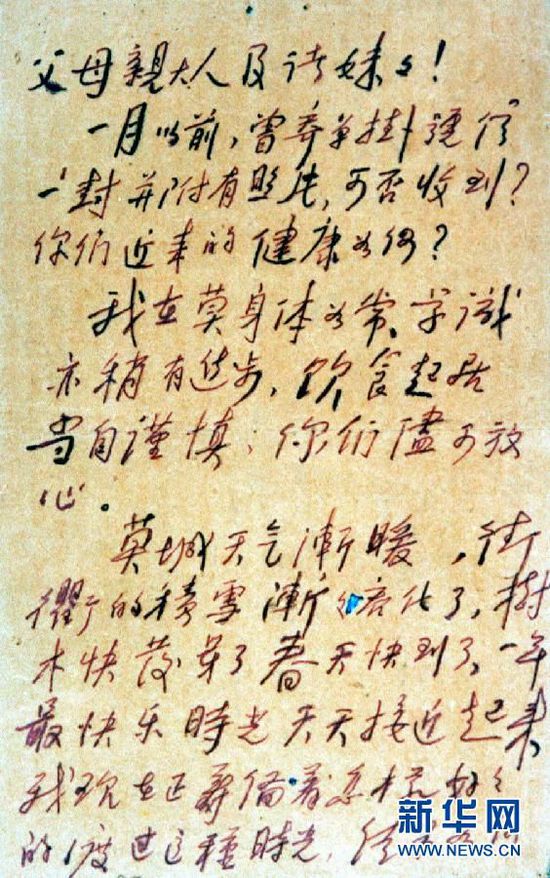 父母親大人及诸妹々！
一月以前，曾寄单掛號信
一封并附有照片，可否收到？
你们近来的健康如何？
我在莫身体如常、学識
亦稍有进步，饮食起居
当自谨慎、你们儘可放
心。
莫城天气渐暖，街
衢的積雪漸々溶化了，樹
木快发芽了春天快到了、一年
最快乐時光天天接近起来
我现在正籌備着怎樣好々
的度过这種時光，
新华网
WWW.NEWS.CN